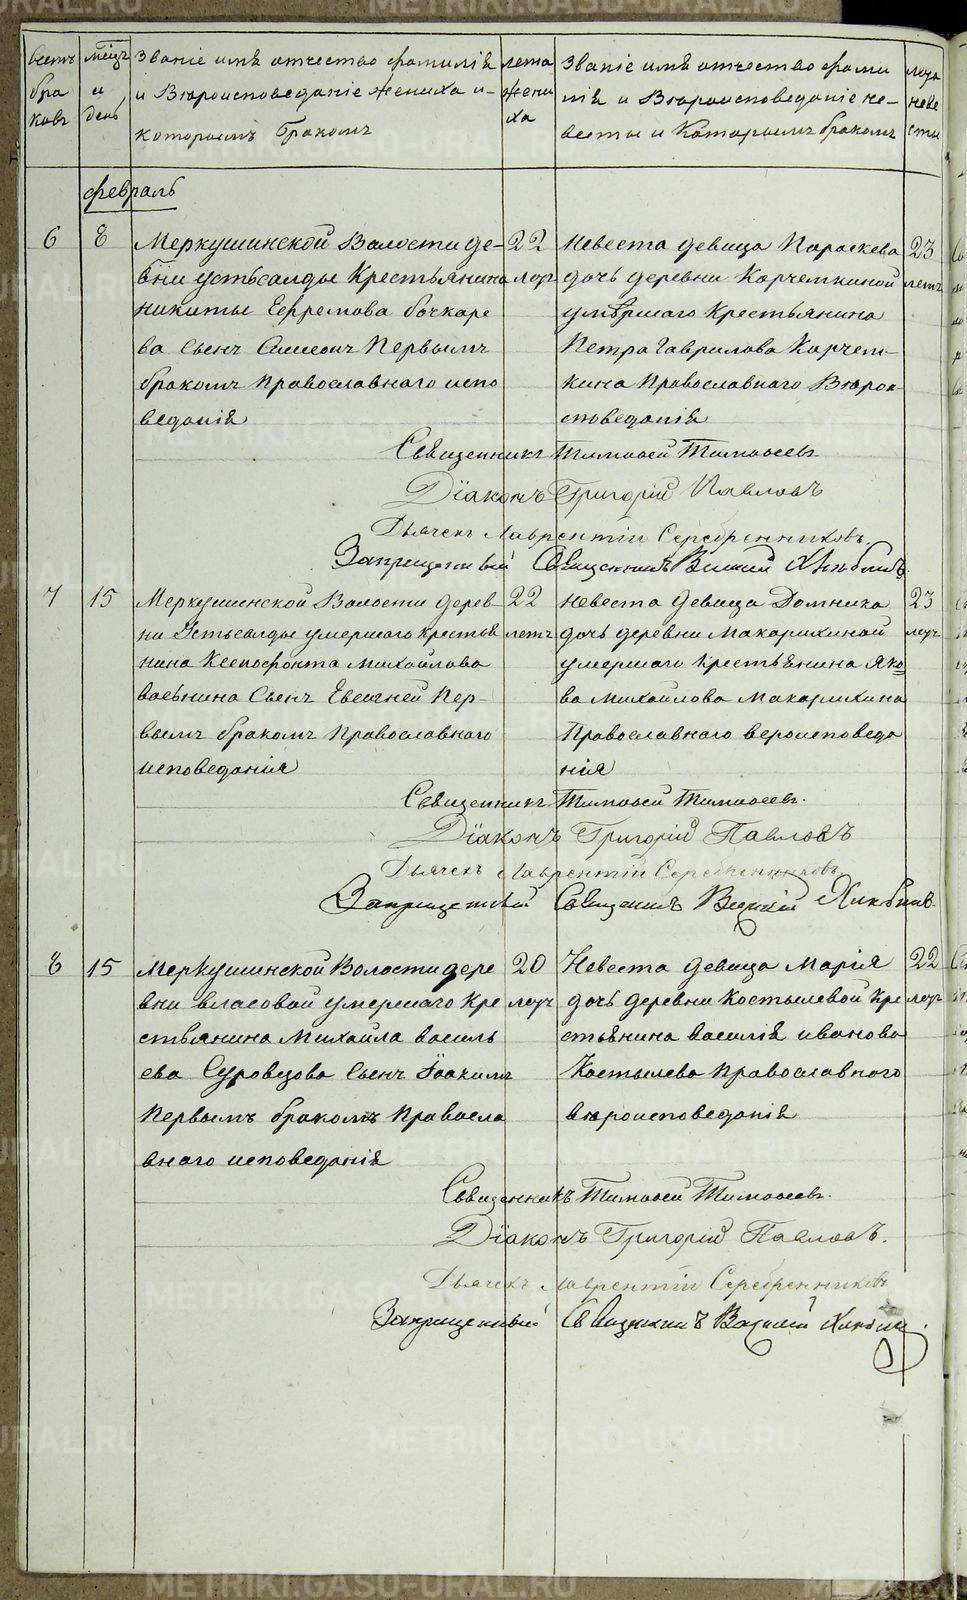 Счетъ браковъ
Мѣсяцъ и день
Званіе имя отчество фамилія
и Вѣроисповеданіе жениха и
которымъ бракомъ
лета жениха
Званіе имя отчество фами
лія и Вѣроисповеданіе не-
весты и Которымъ бракомъ
лета невесты
февраль
6
8
Меркушинской Валости де-
вни устьсалды Крестьянина
никиты Ефремова бочкаре
ва Сынъ Симеонъ Первымъ
бракомъ Православнаго испо
веданія
22
летъ
невеста девица Параскева
дочь деревни Корчемкиной
умѣршаго Крестьянина
Петра Гаврилова Корчем-
кина Православнаго Вѣрои
споведанія
23
летъ
Священникъ Тимоѳей Тимоѳеевъ
Діаконъ Григорій Павловъ
Дьячекъ Лаврентій Серебренниковъ.
Запрещенный Священникъ
7
15
Меркушинской Валости дерев-
ни Устьсалды умершаго крестья
нина Ксенофонта михайлова
Сынъ Евгѣней Пер-
вымъ бракомъ Православнаго
исповеданія
22
летъ
невеста девица Домника
дочь деревни Макарихиной
умершаго Крестьянина Яко
ва михайлова Макарихина
Православнаго вероисповеда
нія
23
летъ
Священникъ Тимоѳей Тимоѳеевъ.
Діаконъ Григорій Павловъ
Дьячекъ Лаврентій Серебренниковъ
Запрещенный Священникъ
8
15
Меркушинской Волости дере
вни власовой умершаго Кре
стьянина Михайла василь
ева Суровцова Сынъ Іоакимъ
Первымъ бракомъ Правосла
внаго исповеданія
20
летъ
Невеста девица Марія
дочь деревни Костылевой Кре
стьянина василія иванова
Костылева Православнаго
вѣроисповеданія
22
летъ
Священникъ Тимоѳей Тимоѳеевъ.
Діаконъ Григорій Павловъ.
Дьячекъ Лаврентій Серебренниковъ
Запрещенный Священникъ Василій
METRIKI.GASO-URAL.RU